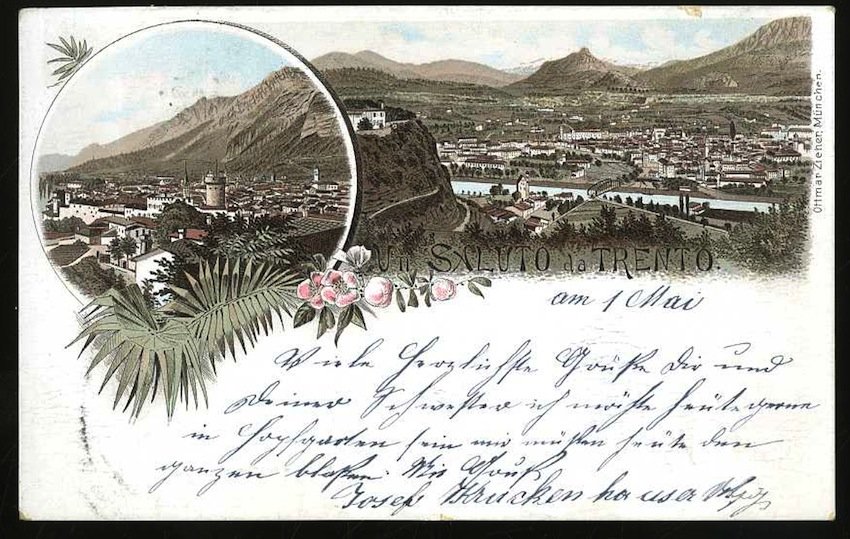 Un SALUTO da TRENTO.
Ottmar Zieher, München.
am 1 Mai
Viele Herzlichste Grüße Dir und
Deiner Schwester ich möchte heute gerne
in Hopfgarten sein wir müßen heute den
ganzen blasen. Mit Gruß
Josef Kruckenhauser